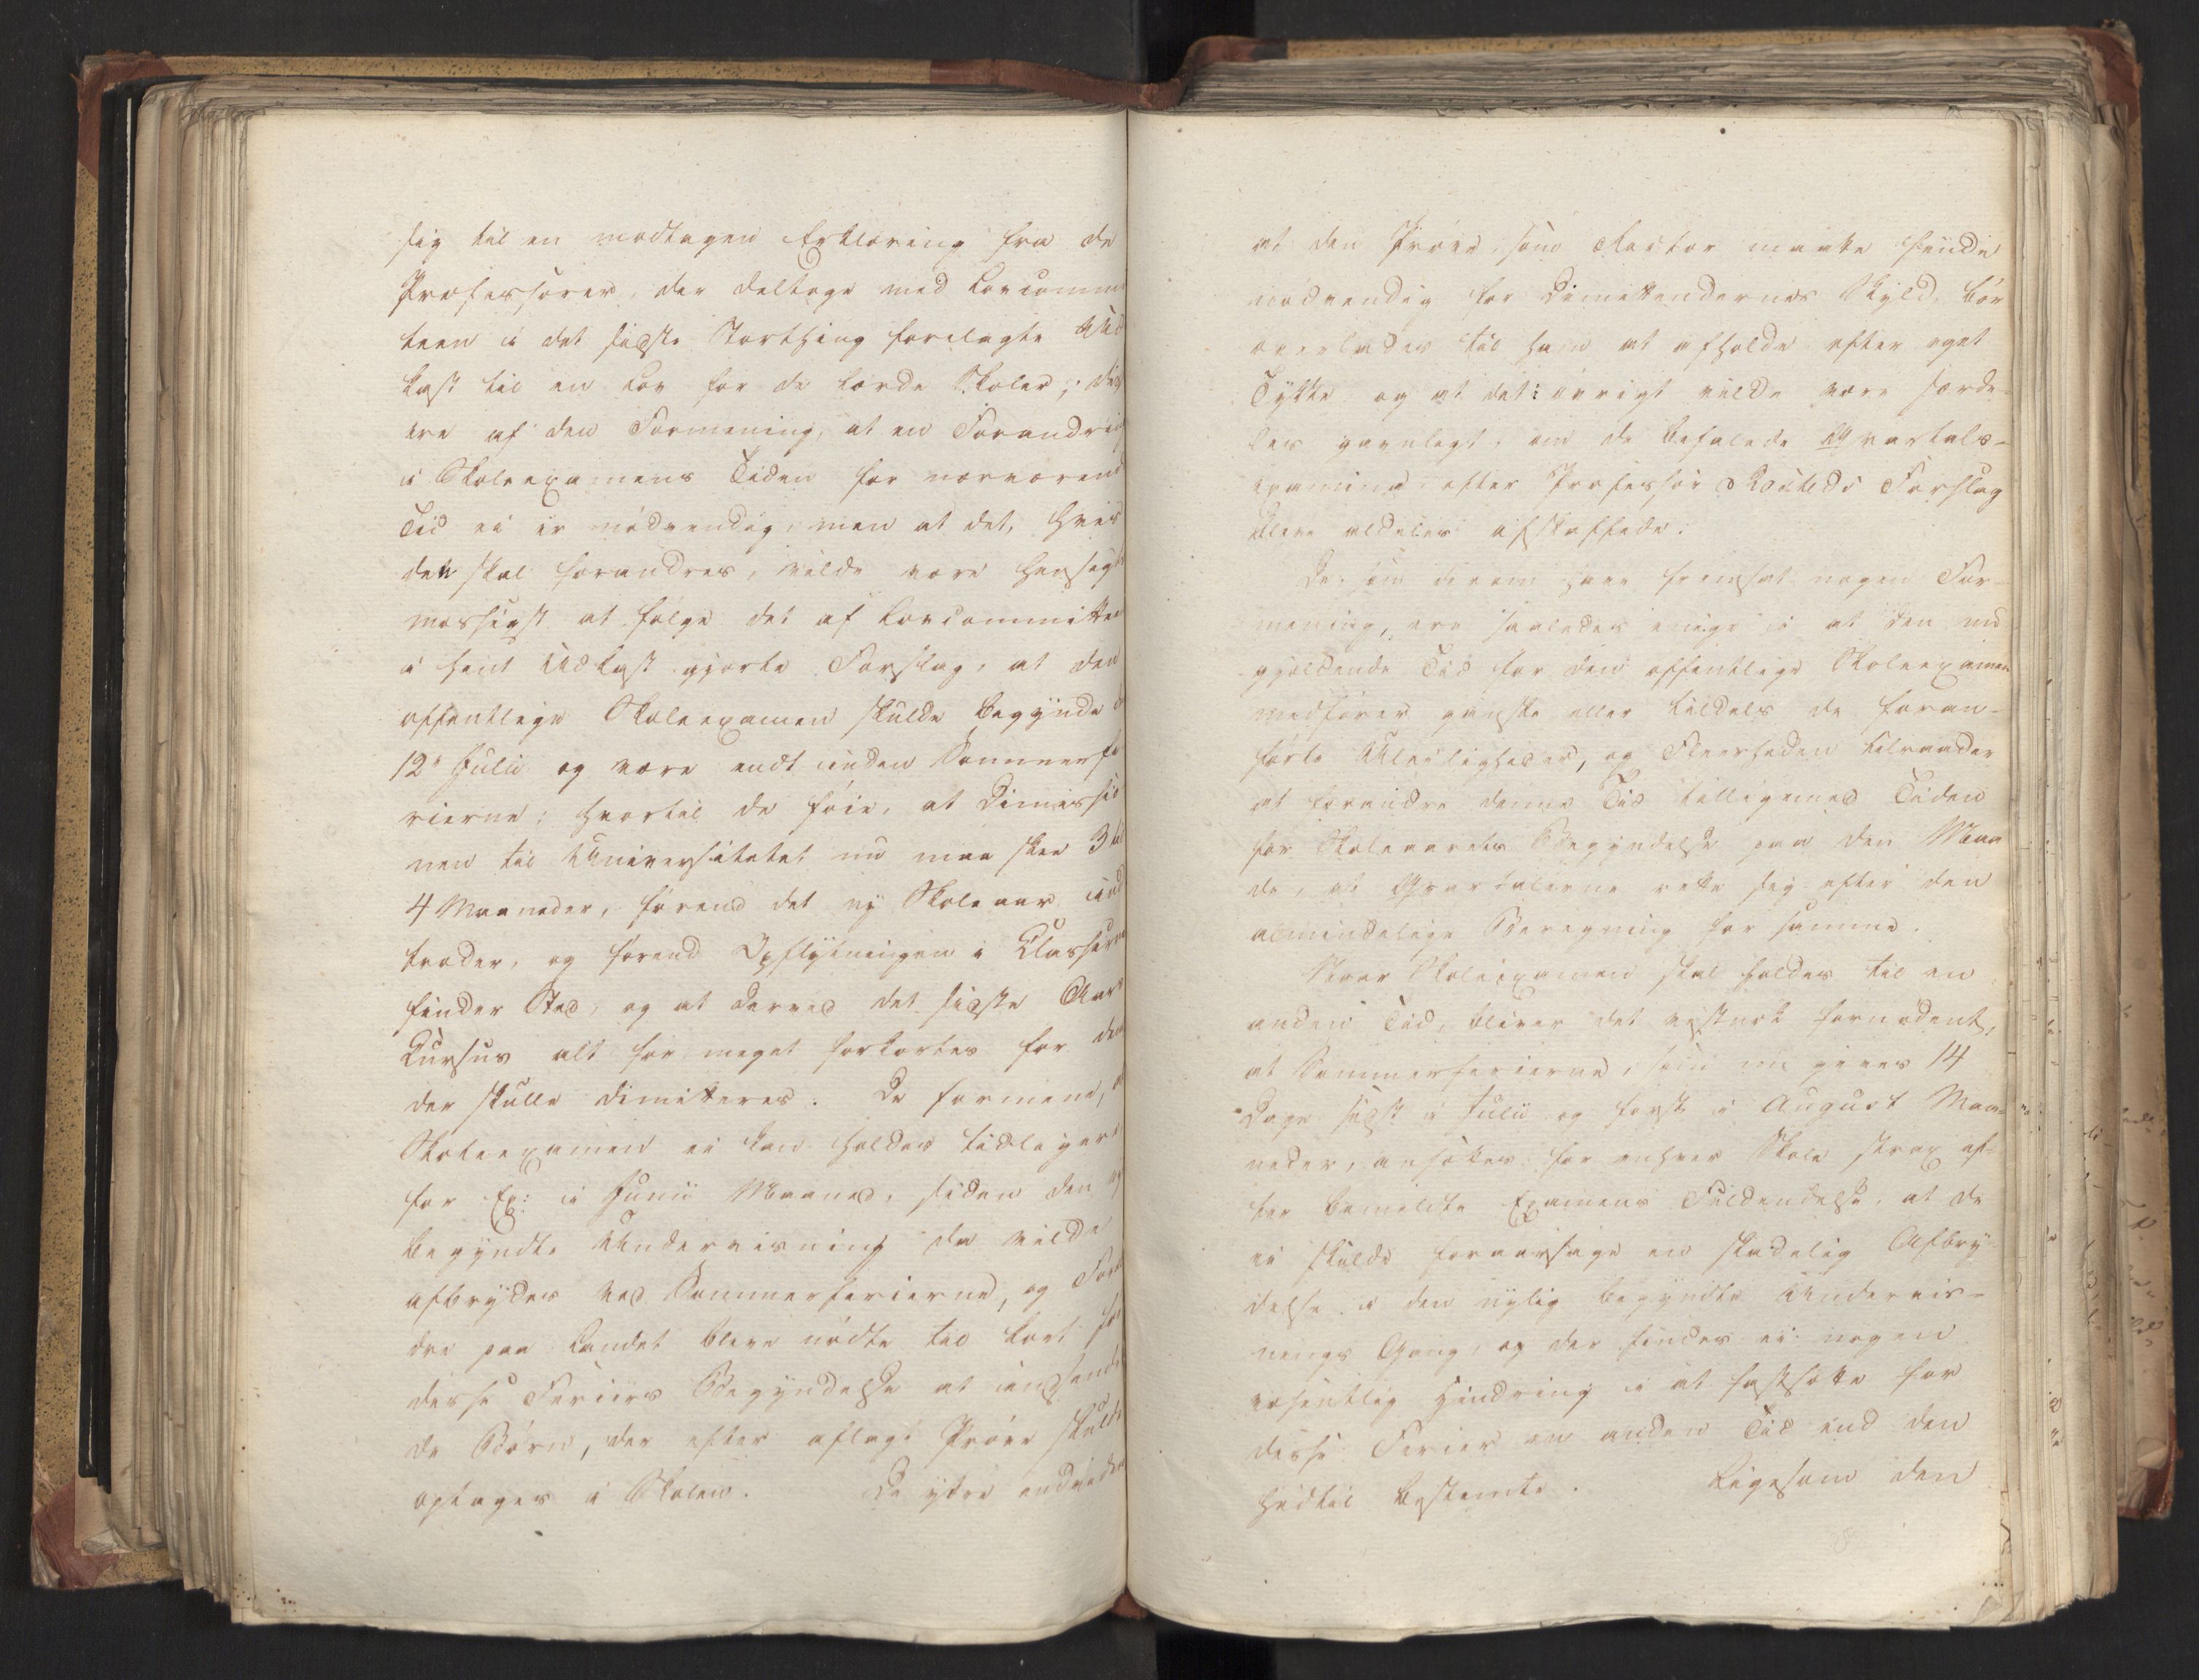 sig til en modtagen Erklæring fra de
Professorer, der deltoge med Lovcommi
teen i det sidste Storthing forelagte Ud
kast til en Lov for de lærde Skoler; disse
ere af den Formening, at en Forandring
i Skoleexamens Tiden for nærværende
Tid ei er nødvendig, men at det, hvis
den skal forandres, vilde være Hensigts
mæssigst at følge det af Lovcommitteen
i sent Udkast gjorte Forslag, at den
offentlige Skoleexamen skulde begynde d
12te Julii og være endt inden Sommerfe
rierne; hvortil de føie, at Dimissio
nen til Universitetet nu maa skee 3 til
4 Maaneder, førend det ny Skoleaar ind
træder, og førend Opflytningen i Classerne
finder Sted, og at derved det sidste Aars
Cursus alt for meget forkortes for dem
der skulle dimitteres. De formene, at
Skoleexamen ei kan holdes tidligere
for Ex: i Junii Maaned, siden den ny
begyndte Underviisning da vilde
afbrydes ved Sommerferierne, og Foræl
dre paa Landet bleve nødte til kort før
disse Feriers Begyndelse at indsende
de Børn, der efter aflagt Prøve skulde
optages i Skolen. De yttre endvidere
at den Prøve, som Rector maatte finde
nødvendig for Dimittendernes Skyld, bør
overlades til ham at afholde efter eget
Tykke og at det i øvrigt vilde være særde-
les gavnligt, om de befalede Qvartals-
examina, efter Professor Rousteds Forslag
bleve aldeles afskaffede.
De, som derom have fremsat nogen For-
mening, ere saaledes enige i at den nu
gjældende Tid for den offentlige Skoleexamen
medfører ganske eller tildels de foran-
førte Uleiligheder, og Fleerheden tilraader
at forandre denne Tid tilligemed Tiden
for Skoleaarets Begyndelse paa den Maa
de, at Qvartalerne rette sig efter den
almindelige Beregning for samme.
Naar Skoleexamen skal holdes til en
anden Tid, bliver det vistnok fornødent,
at Sommerferierne, som nu gives 14
Dage sidst i Julii og først i August Maa-
neder, ansættes for enhver Skole strax ef-
ter bemeldte Examens Fuldendelse, at de
ei skulde foraarsage en skadelig Afbry
delse i den nylig begyndte Underviis-
nings Gang, og der findes ei nogen
væsentlig Hindring i at fastsætte for
disse Ferier en anden Tid end den
hidtil bestemte. Ligesom den